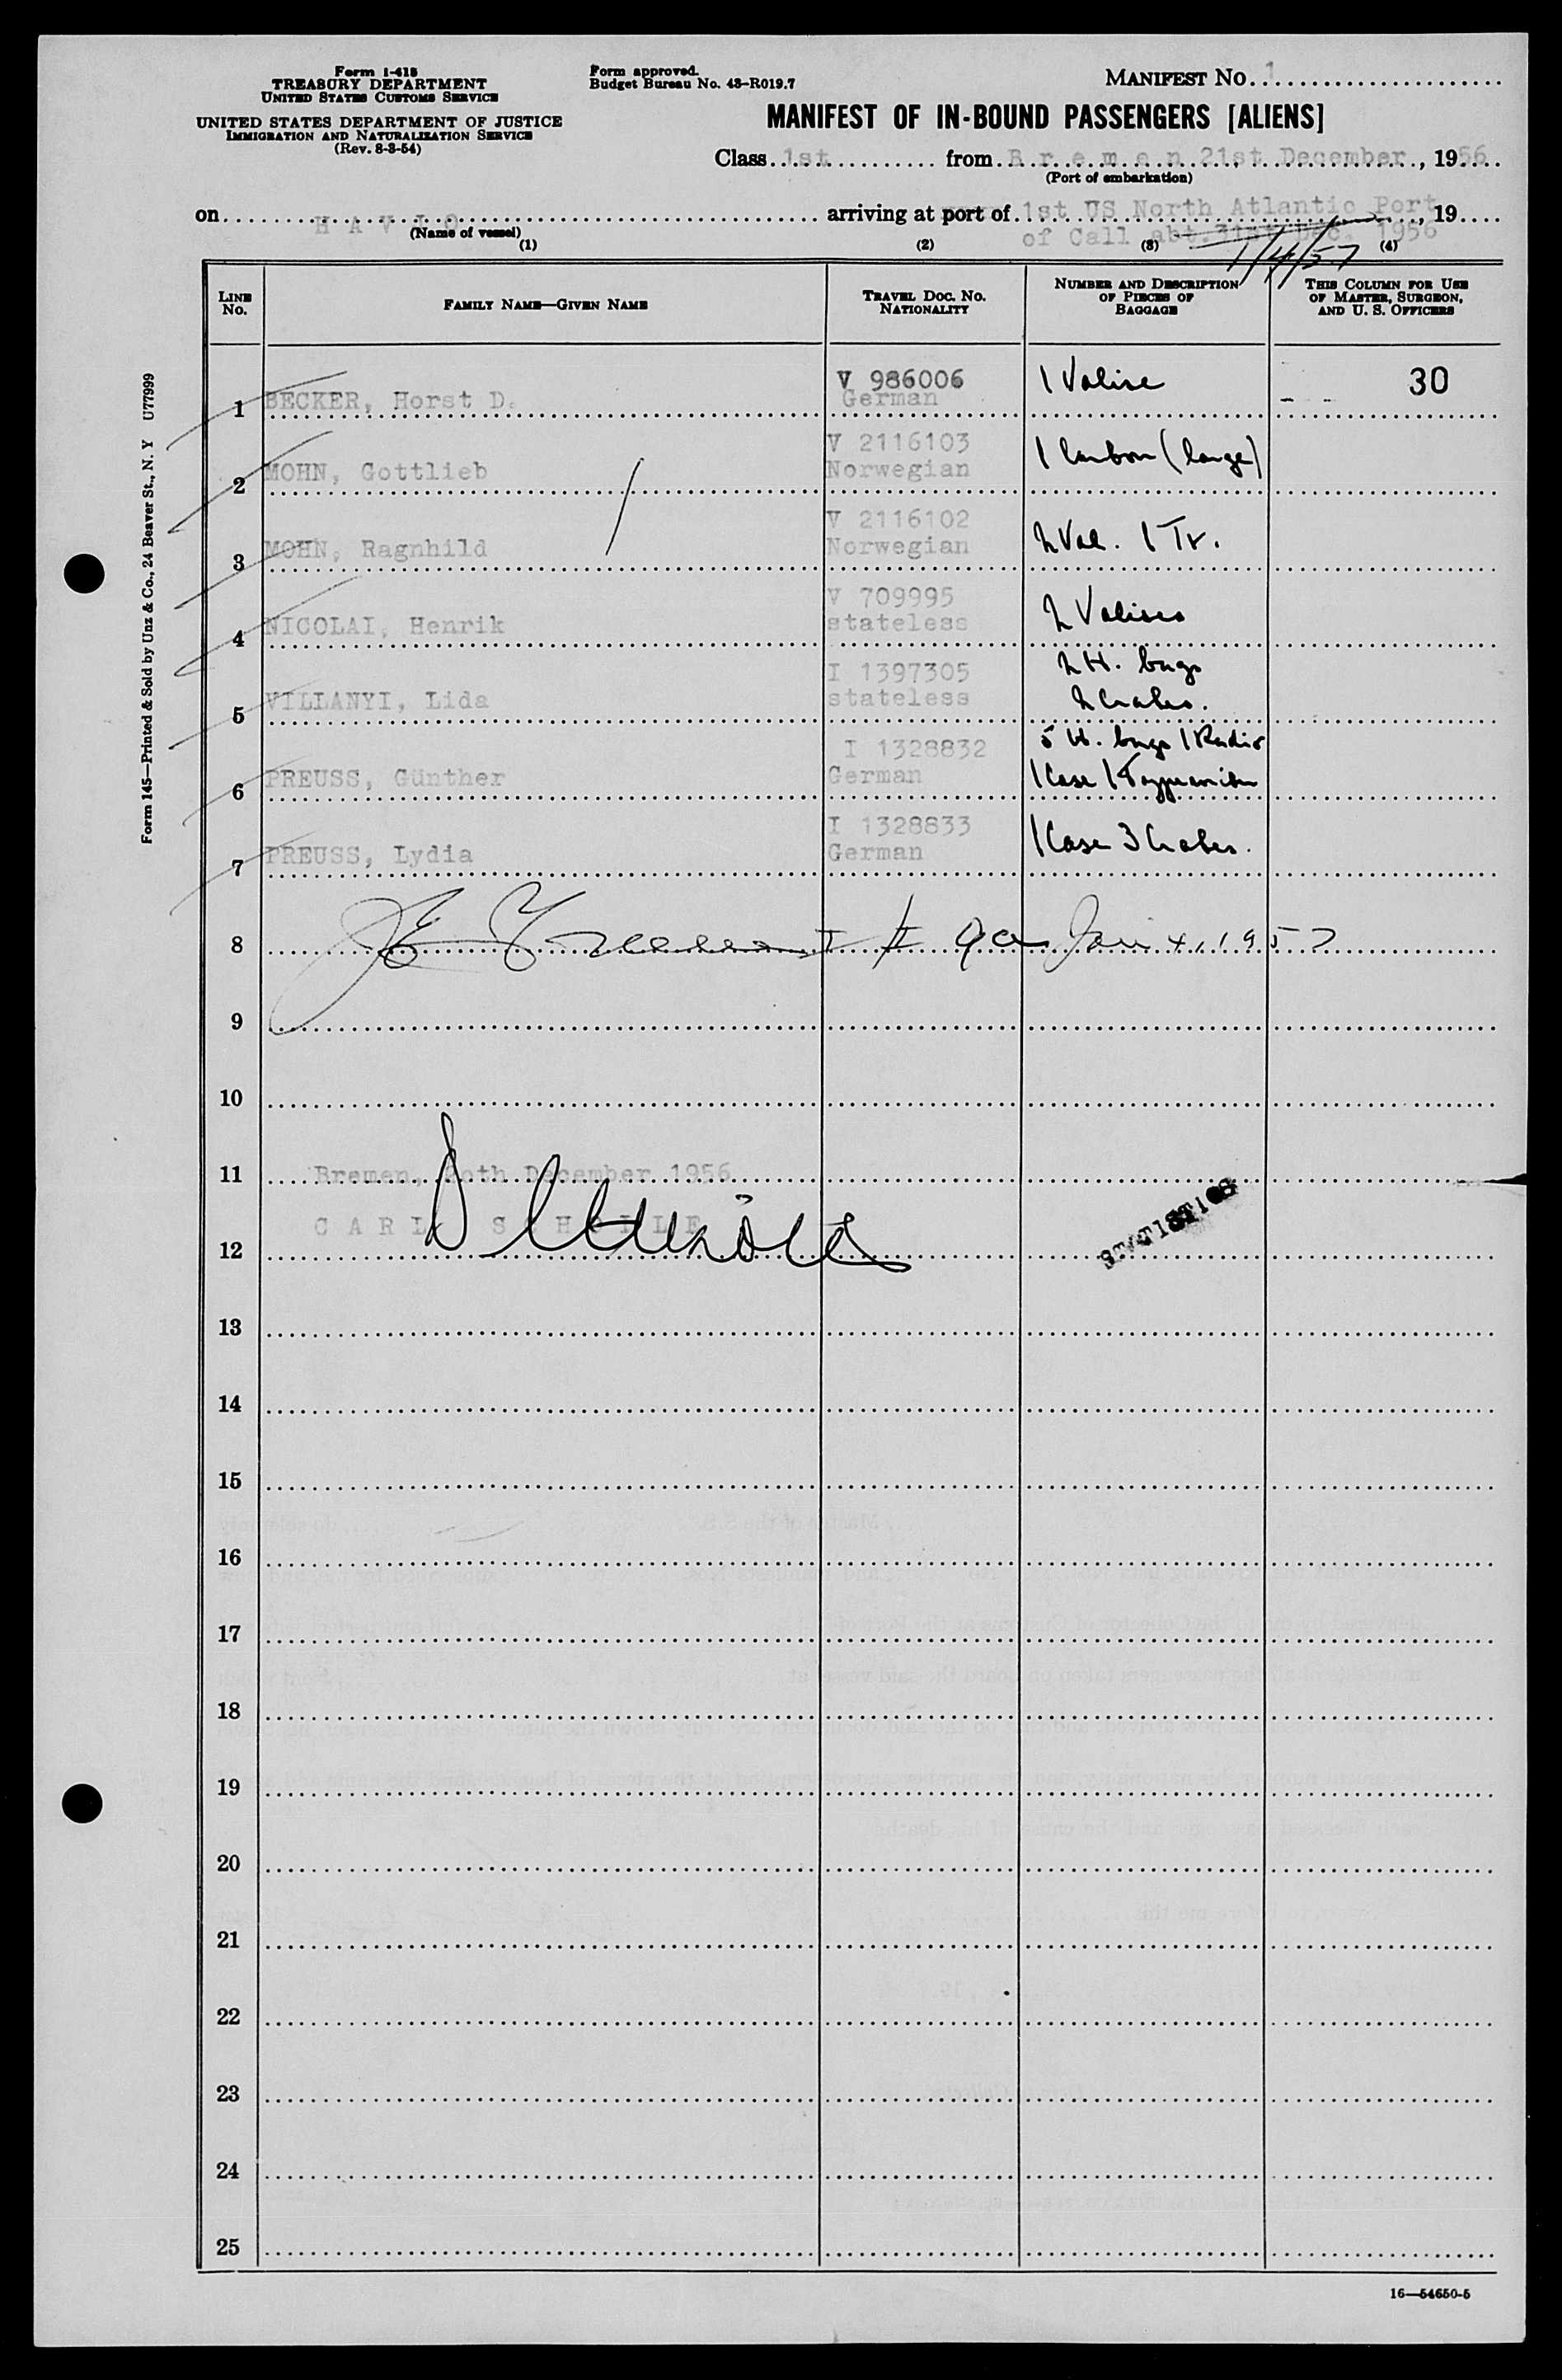 Form I-418
TREASURY DEPARTMENT
UNITED STATES CUSTOMS SERVICE
UNITED STATES DEPARTMENT OF JUSTICE
IMMIGRATION AND NATURALIZATION SERVICE
(Rev. 8-3-54)
Form approved.
Budget Bureau No. 43-R019.7
MANIFEST NO. 1
MANIFEST OF IN-BOUND PASSENGERS [ALIENS]
Class 1st from Bremen 21st December, 1956
(Port of embarkation)
on HAVMO arriving at port of 1st US North Atlantic Port, 19
(Name of vessel)
of Call abt. 31st Dec. 1956
1/4/57
(1) (2) (3) (4)
LINE No.
FAMILY NAME—GIVEN NAME
TRAVEL DOC. NO. NATIONALITY
NUMBER AND DESCRIPTION OF PIECES OF BAGGAGE
THIS COLUMN FOR USE OF MASTER, SURGEON, AND U. S. OFFICERS
V 986006 1 Valise 30
1 BECKER, Horst D. German
V 2116103 1 (large)
2 MOHN, Gottlieb Norwegian
V 2116102 2 Val. 1 Tr.
3 MOHN, Ragnhild Norwegian
V 709995 2 Valises
4 NICOLAI, Henrik stateless
I 1397305 2 H. bags
5 VILLANYI, Lida stateless 2 Crates.
I 1328832 5 H. bags 1 Radio
6 PREUSS, Günther German 1 Case 1 Typewriter
I 1328833 1 Case 3 Crates.
7 PREUSS, Lydia German
8 Jan 4, 1957
9
10
11 Bremen, 20th December 1956
CARL SCHOLLE
12
STATISTICS
13
14
15
16
17
18
19
20
21
22
23
24
25
16—54650-5
Form 145—Printed & Sold by Unz & Co., 24 Beaver St., N. Y U77999